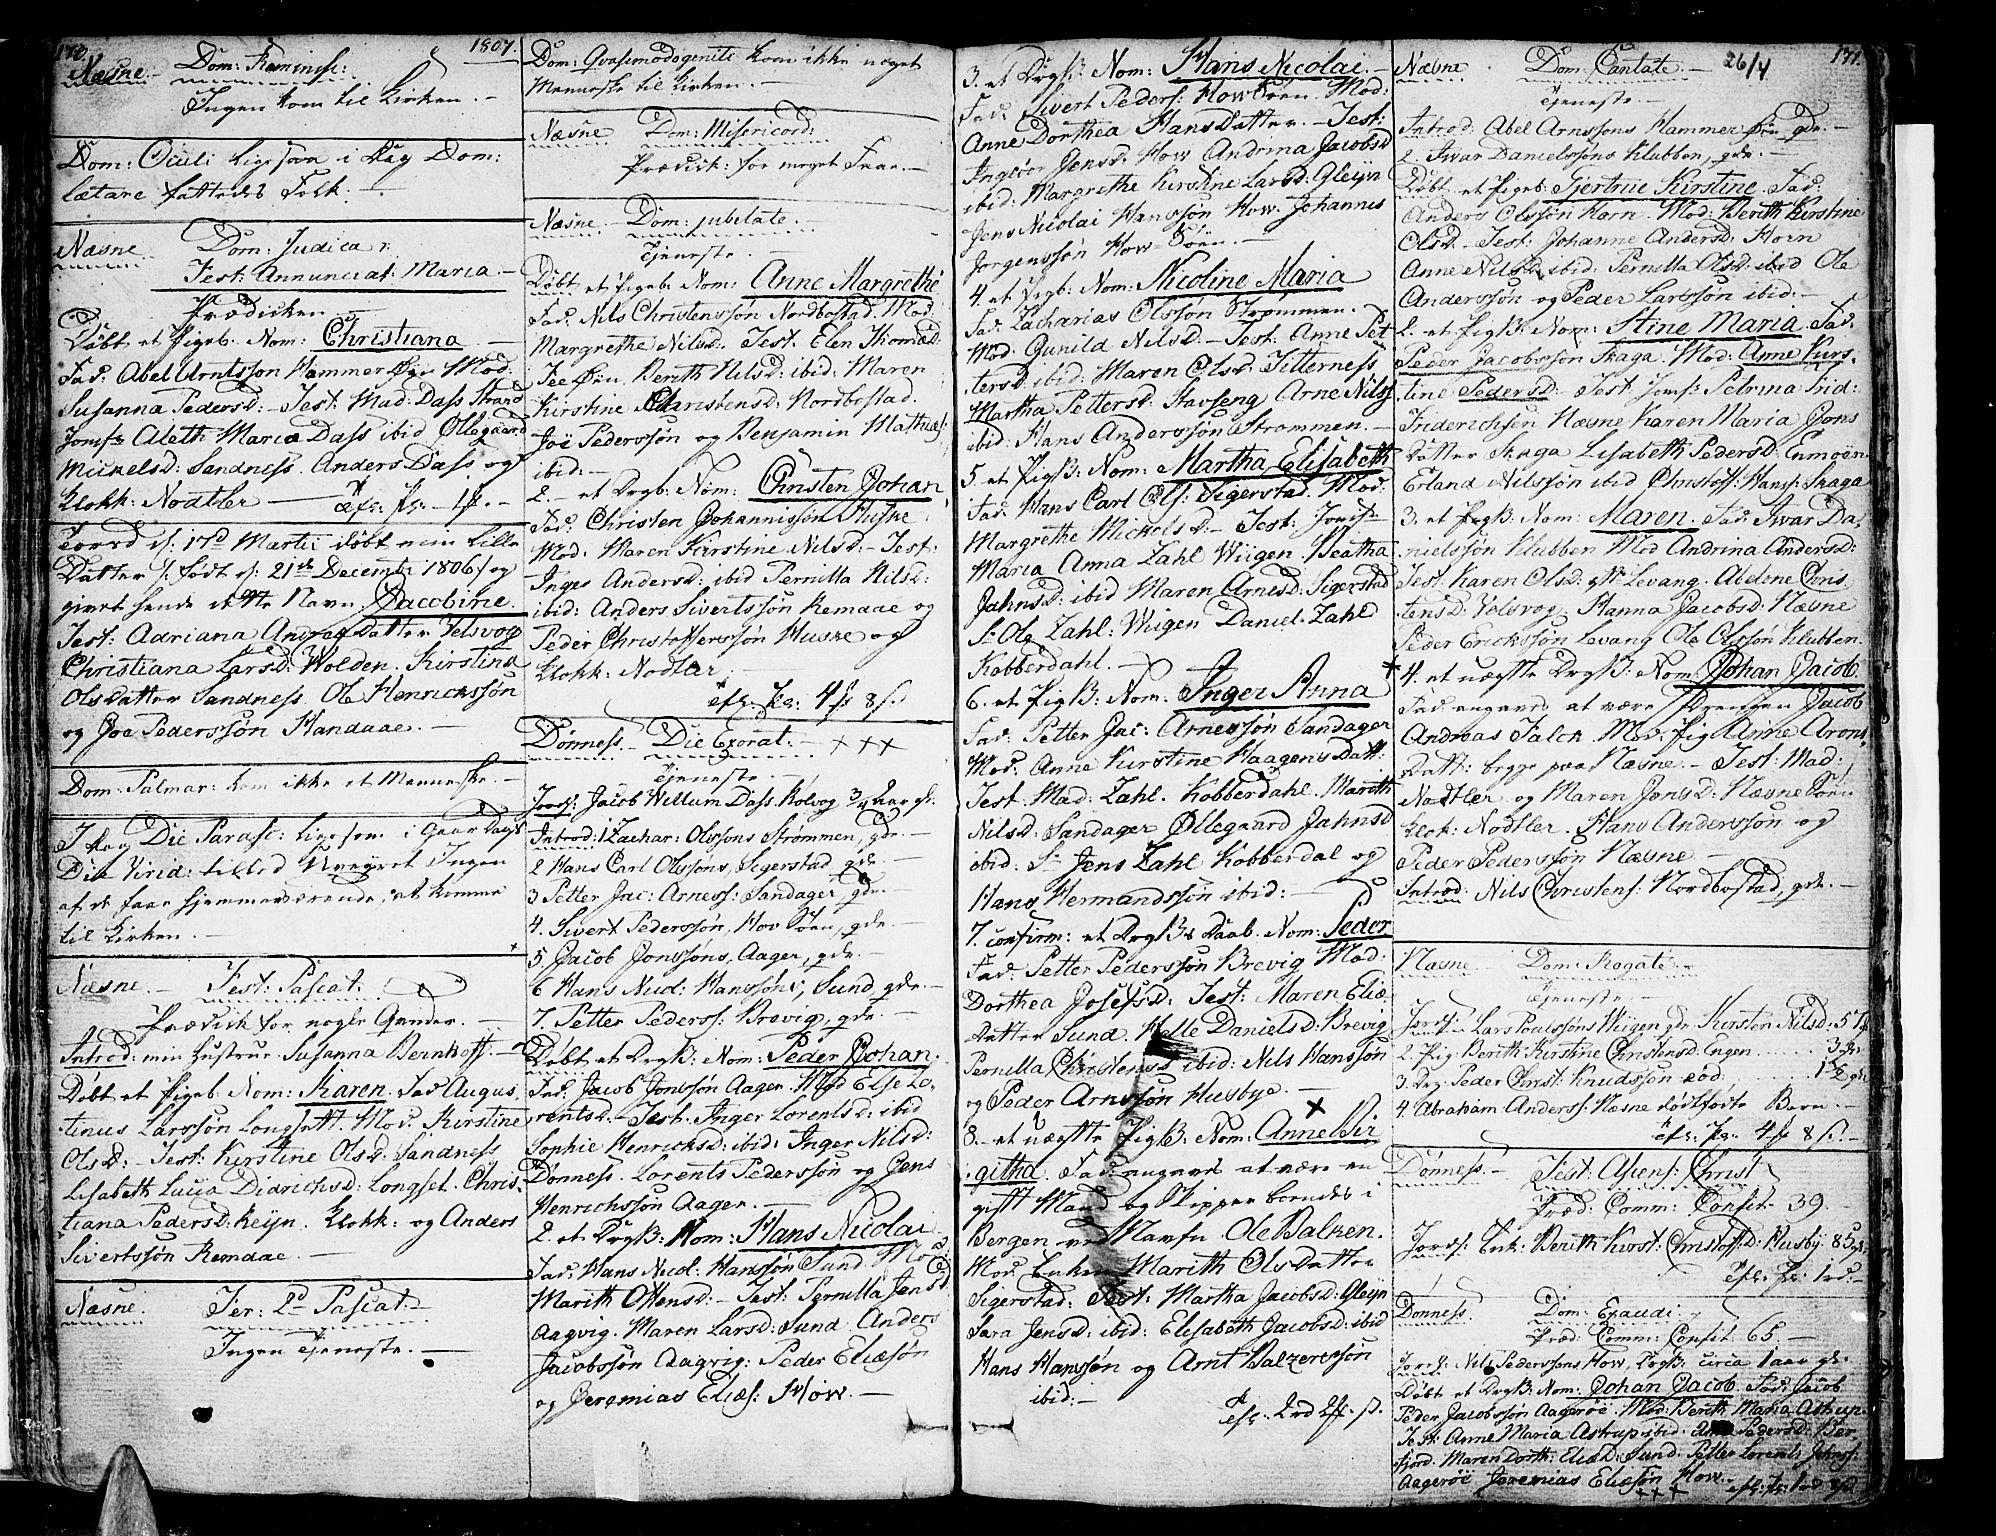 170.
1807.
Næsne. Dom: Reminisc:
Ingen kom til Kirken. —
Dom: Oculi ligesom i Dag Dom:
lætare fattedes Folk. —
Næsne Dom: Judica
Fest: Annunciat: Maria —
Prædicken
Døbt et Pigeb: Nom: Christiana —
Fad: Abel Arntsson Hammer Øye Mod:
Susanna Pedersd: — Test: Mad: Dass Strand
Jomfr: Aleth Maria Dass ibid Øllegaard
Mickelsd: Sandness. Anders Dass og
Klokk: Nodtler —
d: 17d Martii døbt min lille
Datter /: født d: 21de Decembr 1806 :/ og
givet hende dette Navn: Jacobine.
Test: Adriana Andreæ Datter Velsvog
Christiana Larsd: Wolden. Kirstina
Olsdatter Sandness. Ole Henrickssøn
og Joe Pederssøn Handaae. —
Dom: Palmar: kom ikke et Menneske. —
I dag Die Parasc: ligesom i Gaar Dags
Die Virid: tillod Uveyret Ingen
af de faae hjemmeværende, at komme
til Kirken. —
Næsne. — Fest: Pascat:
Prædick for nogle Qvinder. —
Introd: min Hustrue Susanna Bernhoft. —
Døbt et Pigeb: Nom: Karen. Fad Augus,
tinus Larssøn Longsett. Mod: Kirstine
Olsd: — Test: Kirstine Olsd: Sandness
Lisabeth Lucia Didrichsd: Longset. Chris,
tiana Pedersd: Reiyn. Klokk: og Anders
Sivertssøn Remaae. —
Næsne. Fer: 2d Pascat: —
Ingen Tjeneste. —
Dom: Qvasimodogeniti kom ikke noget
Menneske til Kirken. —
Næsne Dom: Misericord:
Prædick: for meget Faae. —
Næsne Dom: jubilate.
Tjeneste —
Døbt et Pigeb: Nom: Anne Margrethe
Fad: Nils Christenssøn Nordbostad. Mod:
Margrethe Nilsd: Test. Elen Thomæd:
Berith Nilsd: ibid: Maren
Kirstine Christensd: Nordbostad.
Joe Pederssøn og Benjamin Mathiæs:
ibid: —
2. — et Drgb: Nom: Christen Johan
Fad: Christen Johannissøn Huske
Mod: Maren Kirstine Nilsd: — Test:
Inger Andersd: ibid Pernilla Nilsd:
ibid: Anders Sivertssøn Remaae og
Peder Christofferssøn Huske og
Klokk: Nodtler. —
4 8
Dønness — Die Exorat: — +++
Tjeneste —
Jords: Jacob Willum Dass Kolvog 3/4 Aar gl:
Introd: 1 Zachar: Olssøns Strømmen, gde. —
2 Hans Carl Olssøns, Sigerstad gde. —
3 Petter Jac: Arness: Sandager, gde. —
4. Sivert Pederssøn, Hov Søen, gde. —
5 Jacob Jonssøns, Aager, gde. —
6 Hans Nud: Hanssøns, Sund, gde. —
7. Petter Pederss: Brevig, gde. —
Døbt et DrgB: Nom: Peder Johan.
Fad: Jacob Jonssøn Aager. Mod Else Lo,
rentsd: — Test: Inger Lorentsd: ibid
Sophie Henricksd: ibid: Inger Nilsd:
Dønness. Lorents Pederssøn og Jens
Henrichssøn Aager. —
2. et DrgB: Nom: Hans Nicolai
Fad: Hans Nud: Hanssøn Sund. Mod:
Marith Ottensd: — Test: Pernilla Jensd
Aagvig. Maren Larsd: Sund Anders
Jacobssøn Aagvig: Peder Eliæsøn
og Jeremias Eliæs: How. —
3. et DrgB: Nom: Hans Nicolai. —
Fad: Sivert Peders: How Søen. Mod:
Anne Dorthea Hans Datter. — Test:
Ingebor Jensd: How Andrina Jacobsd
ibid: Margrethe Kirstine Larsd: Gleiyn
Jens Nicolai Hanssøn How. Johannis
Jørgenssøn How-Søen. —
4. et Pigb: Nom: Nicoline Maria
Fad: Zacharias Olssøn Strømmen.
Mod: Gunild Nilsd: — Test: Anne Pet
tersd: ibid: Maren Olsd: Titterness
Martha Pettersd: Havseng Arne Nilss
ibid: Hans Anderssøn Strømmen. —
5. et PigB: Nom: Martha Elisabeth
Fad: Hans Carl Ols: Sigerstad. Mod:
Margrethe Mickelsd: — Test: Jomfr:
Maria Anna Zahl Wiigen. Beatha
Jahnsd: ibid Maren Arnesd: Sigerstad
Sr Ole Zahl: Wiigen Daniel Zahl
Kobberdahl. —
6. et PigB: Nom: Inger Anna
Fad: Petter Jac: Arnessøn Sandager
Mod: Anne Kirstine Haagens Datt:
Test: Mad: Zahl. Kobberdahl. Marith
Nilsd: Sandager Øllegaard Jahnsd
ibid: Sr Jens Zahl Kobberdal og
Hans Hermandssøn ibid: —
7. confirm: et DrgBs Daab. Nom: Peder
Fad: Petter Pederssøn Brevig Mod:
Dorthea Josefsd: Test: Maren Eliæ
Datter Sund. Helle Danielsd: Brevig
Pernilla ibid: Nils Hanssøn
og Peder Arnssøn Husbye. —
8. — et uægte PigB: Nom: Anne Bir
githa. Fad: angaves at være en
gift Mand og Skipper boendes i
Bergen ved Navfn Ole Balken.
Mod: Enken Marith Olsdatter
Sigerstad: Test: Martha Jacobsd: Gleiyn
Sara Jensd: ibid: Elisabeth Jacobsd: ibid
Hans Hanssøn og Arnt Balzerssøn
ibid: —
171.
Næsne Dom: Cantate. — 26/4
Tjeneste. —
Introd: Abel Arnssøns Hammer Øye gde. —
2. Iwar Danielssøns Klubben, gde. —
Døbt et Pigeb: Gjertrue Kirstine. Fad:
Anders Olssøn Horn. Mod: Berith Kirstine
Olsd — Test: Johanne Andersd: Horn
Anne Nilsd: ibid: Pernilla Olsd: ibid Ole
Anderssøn og Peder Larssøn ibid: —
2. et PigB: Nom: Stine Maria. Fad:
Peder Jacobssøn Skaga. Mod: Anne Kirs,
tine Pedersd: Test Jomfr: Petrina Frid:
Friderichsen Næsne Karen Maria Jons
Datter Skaga Lisabeth Pedersd: Enmoen
Erland Nilssøn ibid Christoff: Hans: Skaga
3. et PigB: Nom: Maren. Fad: Iwar Da,
nielssøn Klubben Mod Andrina Andersd:
Test: Karen Olsd: Levang. Abelone Chris,
tensd: Velsvog. Hanna Jacobsd: Næsne
Peder Erickssøn Levang Ole Olssøn Klubben.
4. et uægte DrgB: Nom: Johan Jacob
Fad angaves at være Jacob
Andreas Falck. Mod: Pig Anne Arons,
Datt: begge paa Næsne. — Test: Mad:
Nodtler og Maren Jensd: Næsne Søen
Klok: Nodtler. Hans Anderssøn og
Peder Pederssøn Næsne —
Introd: Nils Christens: Nordbostad, gde. —
Næsne Dom: Rogate. —
Tjeneste —
Jords: Lars Poulssøns Wiigen gde Kirsten Nilsd: 57
2. Pig: Berith Kirstine Christensd: Engen . . . 3
3. Drg: Peder Christ: Knudssøn . . . 1
4. Abraham Anderss: Næsne dødfødte Barn. —
4 8
Dønness — Fest: Ascens: Christ
Præd: Comm: Confit. 39.
Jords: Enk: Berith Kirst: Christoff:D: Husby 85
Dønness. Dom: Exaudi.
Præd: Comm: Confit. 65. —
Jords: Nils Pederssøns How, DrgB: circa 1 aar gl:
Døbt et DrgB: Nom: Johan Jacob. Fad: Jacob
Peder Jacobssøn Aagerøe. Mod: Berith Maria Astrup.
Test: Anne Maria Astrup ibid: Pedersd:
fjord. Maren Dorth: Eliæd: Sund. Petter Lorents
Aagerøe Jeremias Eliæsøn How. —
+++